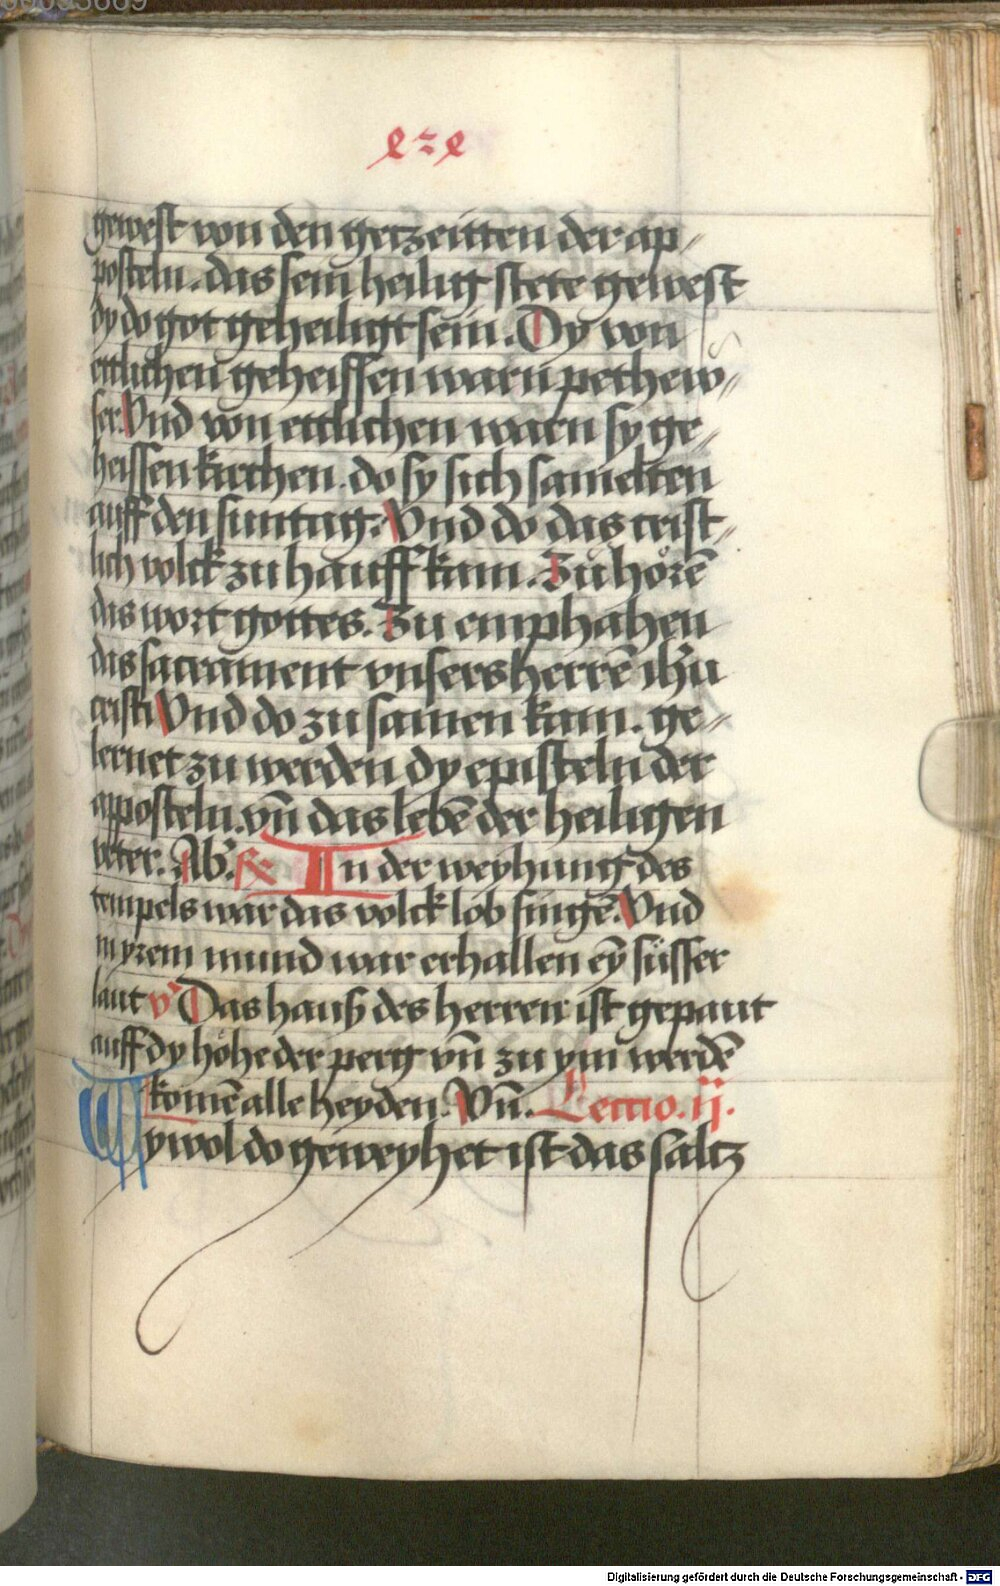 gewest von den gerzeitten der ap⸗
posteln. das sein heilig stete gewest
dy do got geheiligt sein. Dy von
ettlichen geheissen warn pethew⸗
ser. Vnd von ettlichen warn sy ge⸗
heissen kirchen. do sy sich samelten
auff den suntag. Vnd do das crist⸗
lich volck zu hauff kam. Zu hörē
das wort gottes. Zu emphahen
das sacrament vnsers herrē ihū
cristi Vnd do zu samen kam. ge⸗
lernet zu werden dy episteln der
apposteln. vn̄ das lebē der heiligen
veter. Ab'. ℟ In der weyhung des
tempels war das volck lob singē. Vnd
in yrem mund war erhallen ey̅ süsser
laut v' Das hauß des herren ist gepaut
auff dy höhe der perg vn̄ zu ym werdē
komē alle heyden. Vn̄. Lectio. ij.
Wywol do geweyhet ist das saltz
Digitalisierung gefördert durch die Deutsche Forschungsgemeinschaft - DFG